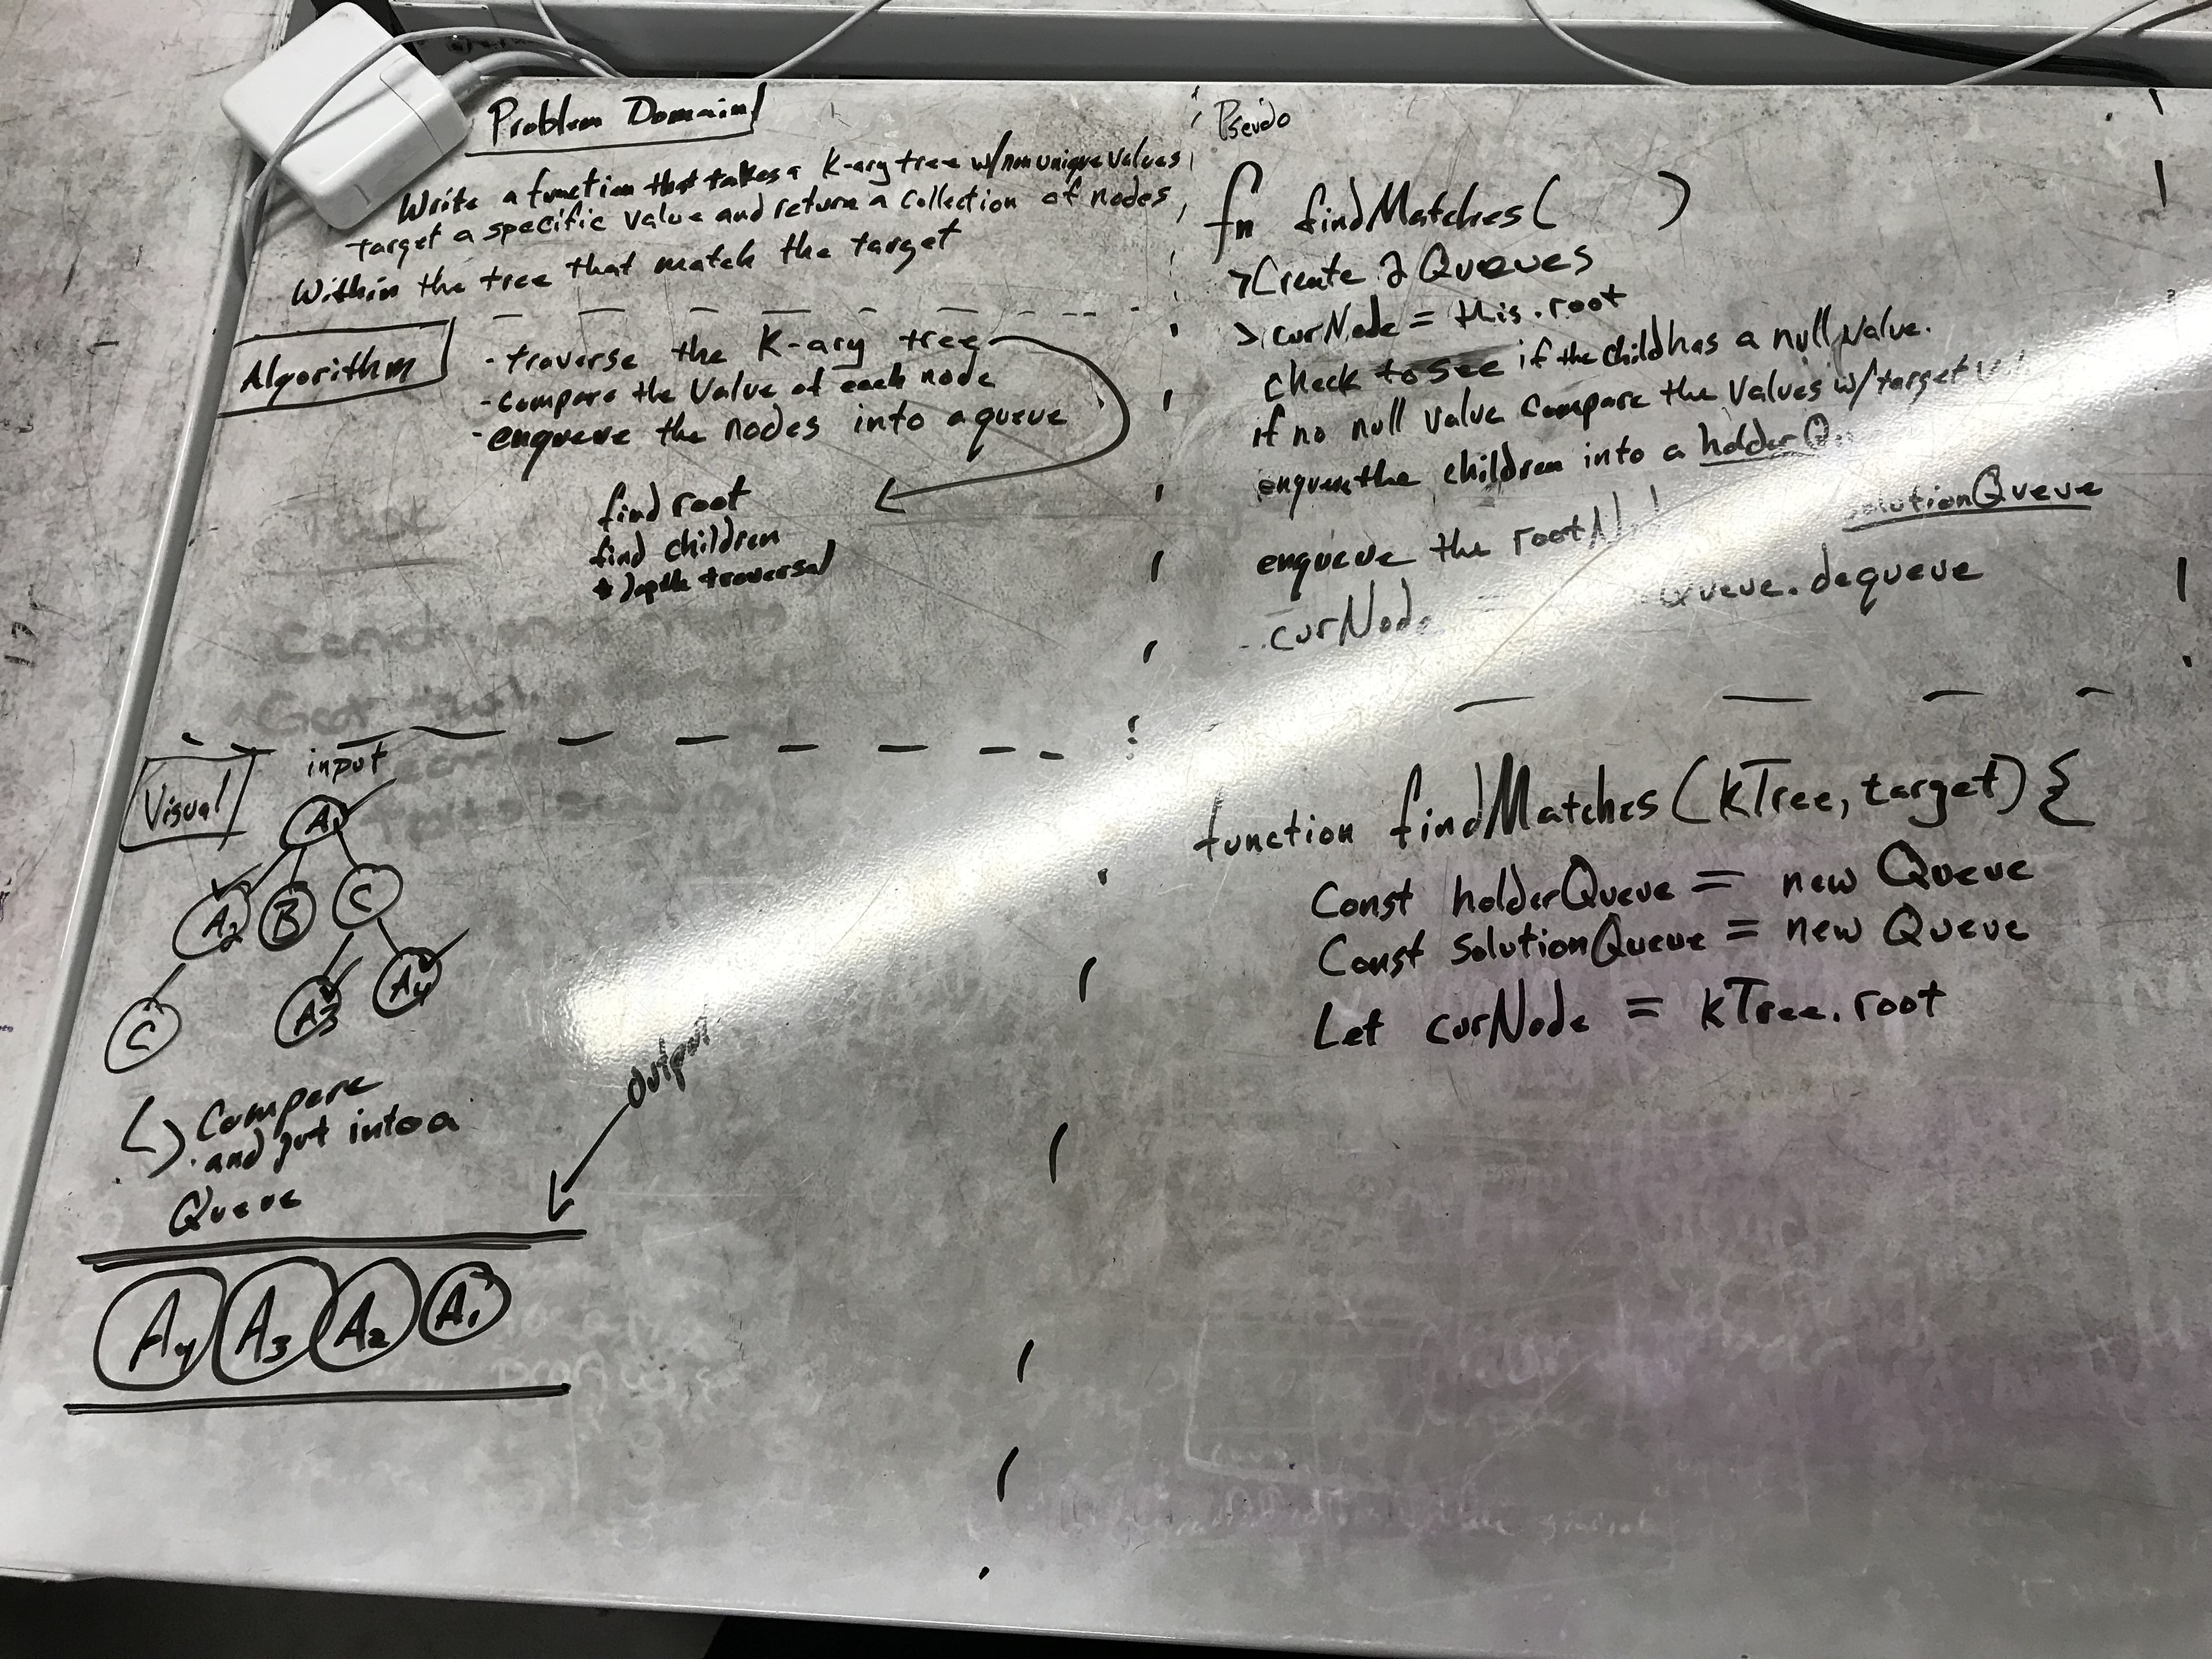 Problem Domain
Write a function that takes a K-ary tree w/ non unique values
target a specific value and return a collection of nodes
Within the tree that match the target
Algorithm
- traverse the K-ary tree
- compare the Value of each node
- enqueue the nodes into a queue
find root
find children
* depth traversal
Visual
input
A1
A2 B C
C A3 A4
Compare
and put into a
Queue
output
A4 A3 A2 A1
Pseudo
fn findMatches( )
> Create 2 Queues
> curNode = this.root
Check to see if the child has a null value.
if no null value compare the values w/ target
enqueue the children into a holderQ
enqueue the rootN solutionQueue
curNode Queue.dequeue
function findMatches(kTree, target) {
Const holderQueue = new Queue
Const solutionQueue = new Queue
Let curNode = kTree.root